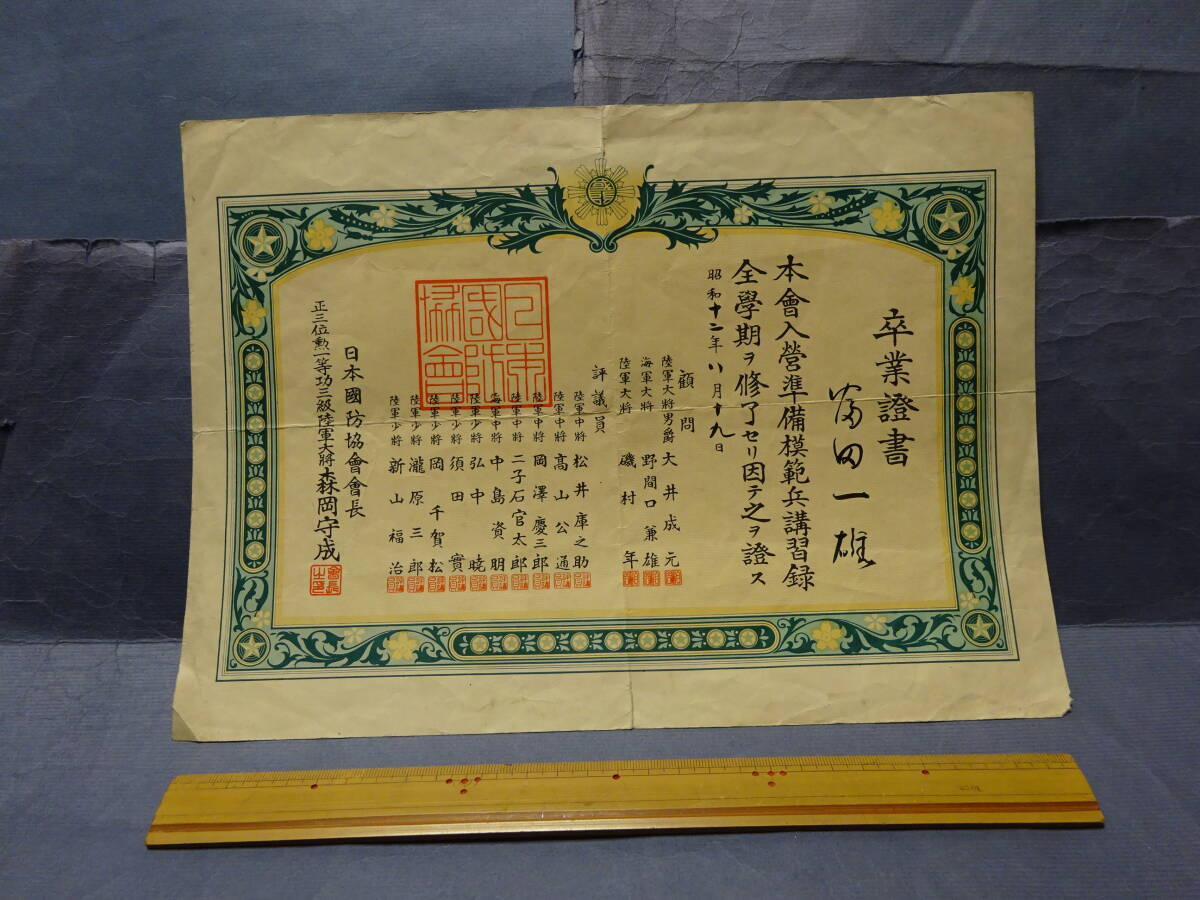 卒業證書
富田一雄
本會入營準備模範兵講習録
全學期ヲ修了セリ因テ之ヲ證ス
昭和十二年八月十九日
顧問
陸軍大將男爵 大井成元
海軍大將 野間口兼雄
陸軍大將 磯村年
評議員
陸軍中將 松井庫之助
陸軍中將 高山公通
陸軍中將 岡澤慶三郎
陸軍中將 二子石官太郎
海軍中將 中島資朋
陸軍少將 弘中曉
陸軍少將 須田實
陸軍少將 岡千賀松
陸軍少將 瀧原三郎
陸軍少將 新山福治
日本國防協會
日本國防協會會長
正三位勲一等功三級陸軍大將 森岡守成
會長之印